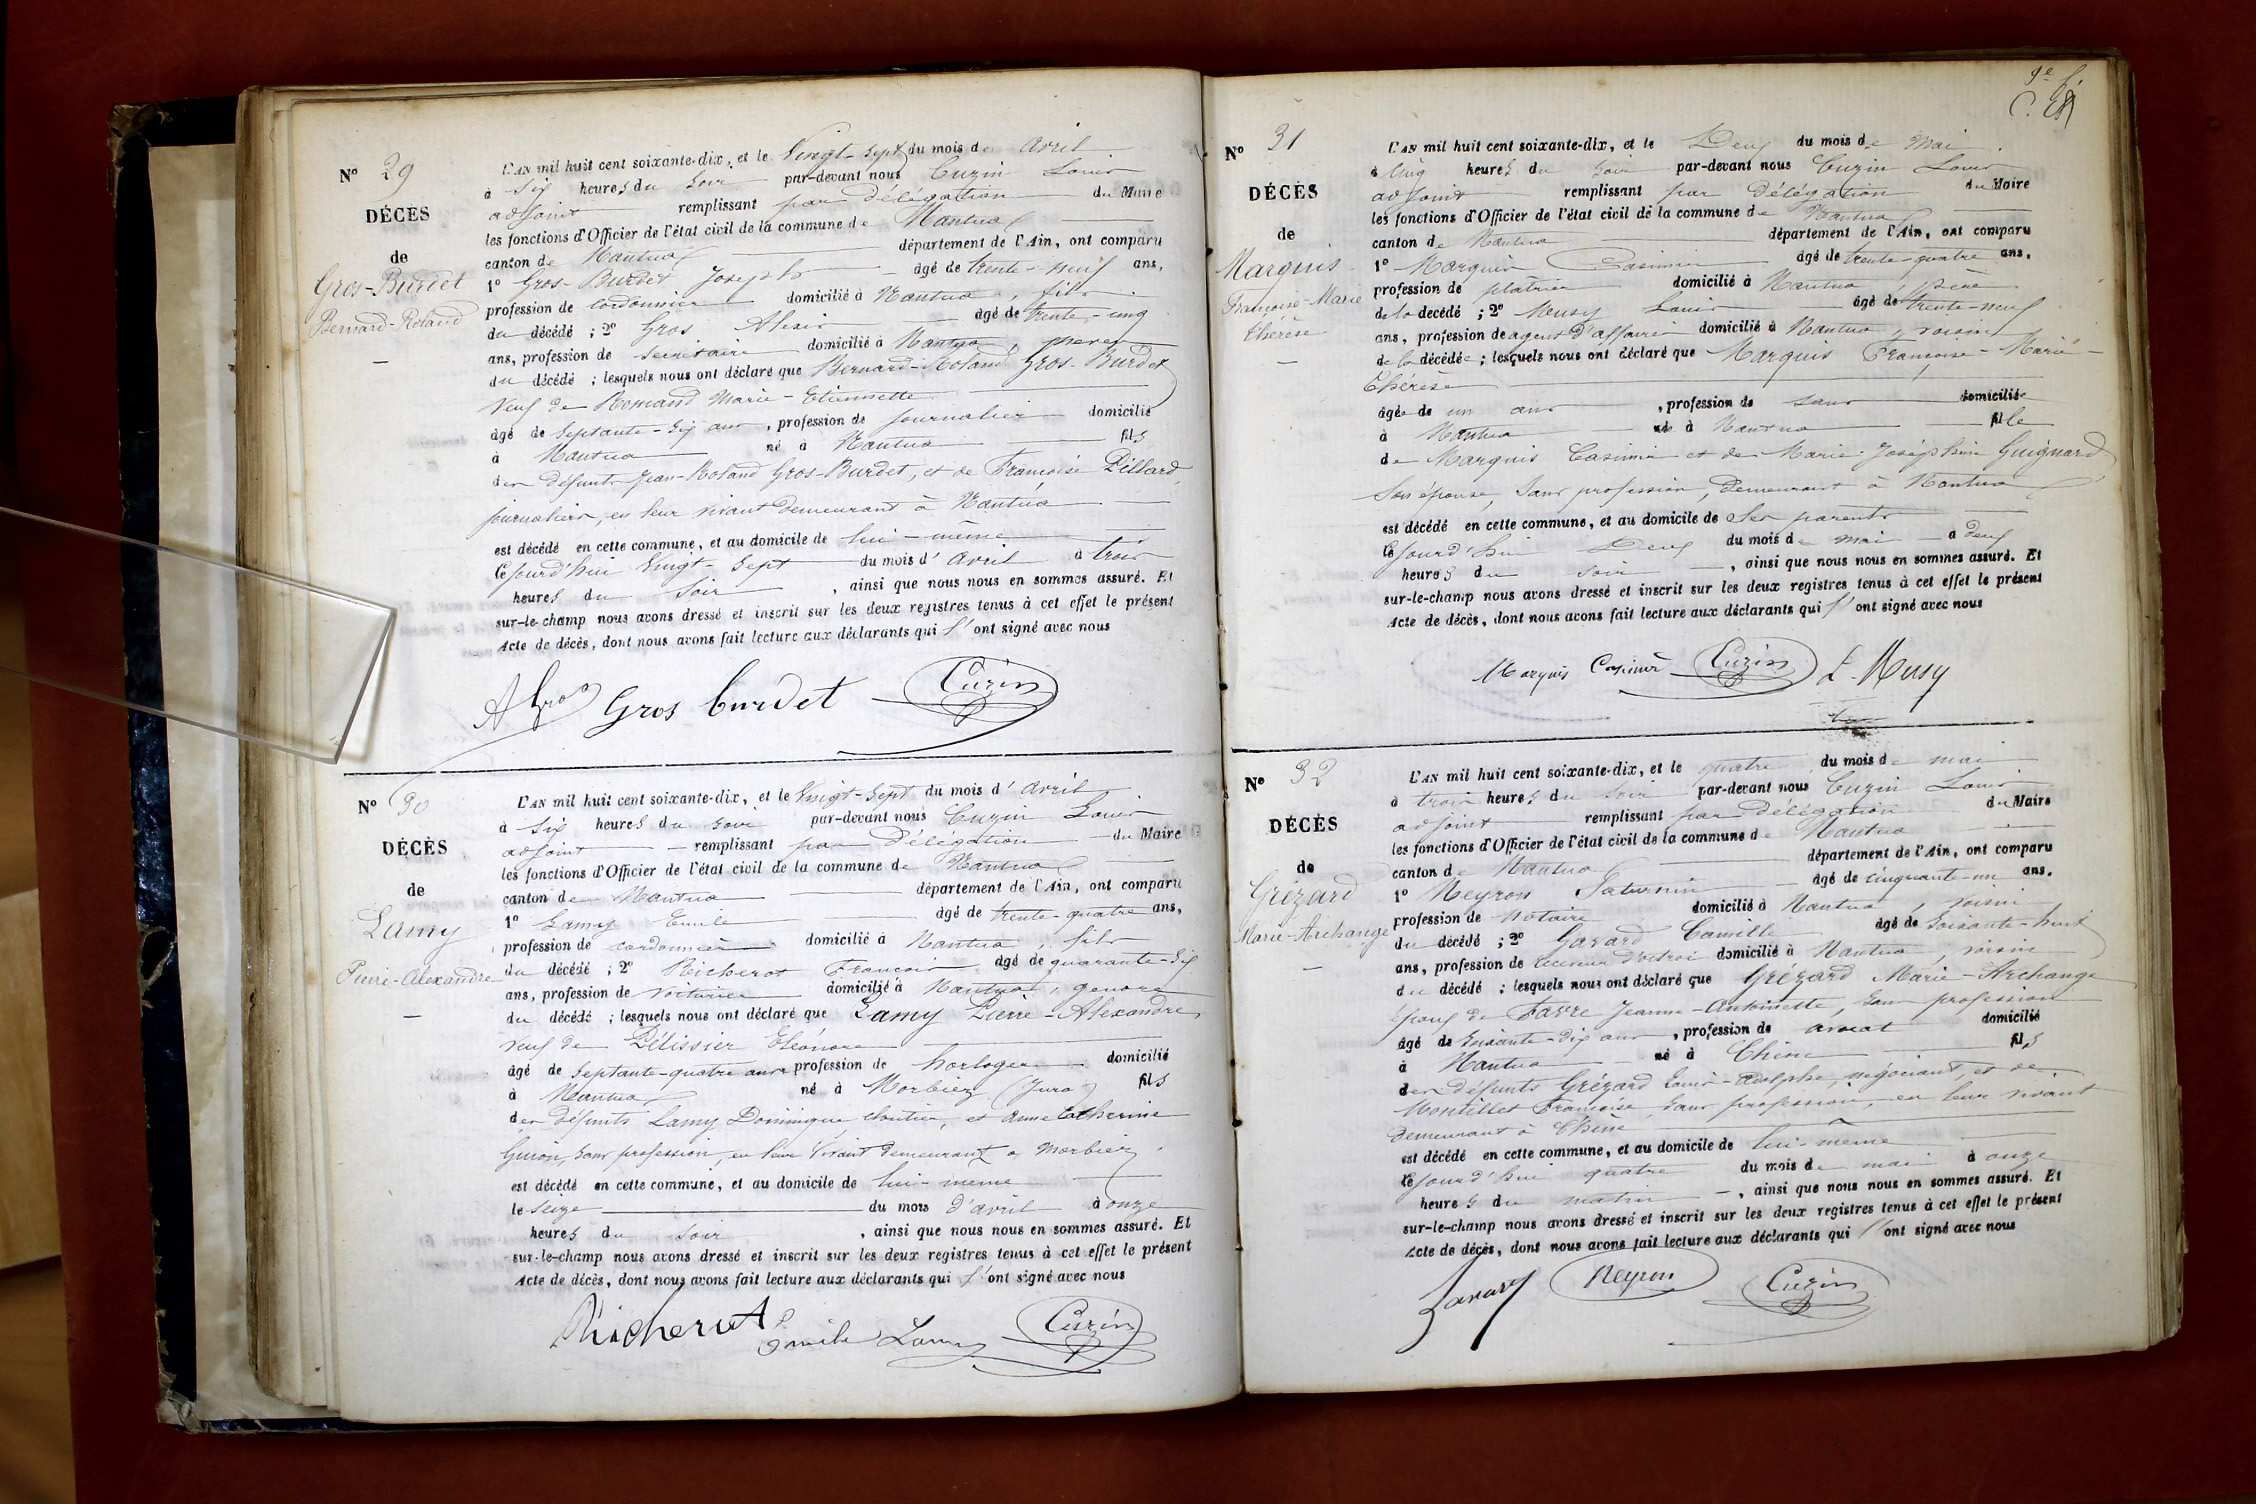 Nº 29
DÉCÈS
de
Gros-Burdet
Bernard-Roland
L'AN mil huit cent soixante-dix, et le Vingt-Sept du mois d' Avril
à Six heures du Soir par-devant nous Cuzin Louis
adjoint remplissant par délégation du Maire
les fonctions d'Officier de l'état civil de la commune de Nantua
canton de Nantua département de l'Ain, ont comparu
1º Gros-Burdet Joseph âgé de trente-neuf ans,
profession de cordonnier domicilié à Nantua, fils
du décédé ; 2º Gros Alexis âgé de trente-cinq
ans, profession de Secrétaire domicilié à Nantua, neveu
du décédé ; lesquels nous ont déclaré que Bernard-Roland Gros-Burdet
Veuf de Romand Marie-Etiennette
âgé de Septante-Six ans, profession de journalier domicilié
à Nantua né à Nantua fils
des défunts Jean-Roland Gros-Burdet, et de Françoise Pillard,
journaliers, en leur vivant demeurant à Nantua
est décédé en cette commune, et au domicile de lui-même
Cejourd'hui Vingt-Sept du mois d' Avril à trois
heures du Soir, ainsi que nous nous en sommes assuré. Et
sur-le-champ nous avons dressé et inscrit sur les deux registres tenus à cet effet le présent
Acte de décès, dont nous avons fait lecture aux déclarants qui l'ont signé avec nous
A Gros Gros burdet Cuzin
Nº 30
DÉCÈS
de
Lamy
Pierre-Alexandre
L'AN mil huit cent soixante-dix, et le Vingt-Sept du mois d' Avril
à Six heures du Soir par-devant nous Cuzin Louis
adjoint remplissant par Délégation du Maire
les fonctions d'Officier de l'état civil de la commune de Nantua
canton de Nantua département de l'Ain, ont comparu
1º Lamy Emile âgé de trente-quatre ans,
profession de cordonnier domicilié à Nantua, fils
du décédé ; 2º Richerot François âgé de quarante-Six
ans, profession de Voiturier domicilié à Nantua, gendre
du décédé ; lesquels nous ont déclaré que Lamy Pierre-Alexandre,
Veuf de Pélissier Eléonore
âgé de Septante-quatre ans profession de horloger domicilié
à Nantua né à Morbiez (Jura) fils
des défunts Lamy Dominique cloutier, et Anne Catherine
Guion, Sans profession, en leur Vivant demeurant à Morbiez
est décédé en cette commune, et au domicile de lui-même
le Seize du mois d'avril à onze
heures du Soir, ainsi que nous nous en sommes assuré. Et
sur-le-champ nous avons dressé et inscrit sur les deux registres tenus à cet effet le présent
Acte de décès, dont nous avons fait lecture aux déclarants qui l'ont signé avec nous
Richerot Emile Lamy Cuzin
9e f.
Nº 31
DÉCÈS
de
Marquis
Françoise-Marie
Thérèse
L'AN mil huit cent soixante-dix, et le Deux du mois de Mai
à Cinq heures du Soir par-devant nous Cuzin Louis
adjoint remplissant par Délégation du Maire
les fonctions d'Officier de l'état civil de la commune de Nantua
canton de Nantua département de l'Ain, ont comparu
1º Marquis Casimir âgé de trente-quatre ans,
profession de plâtrier domicilié à Nantua, père
de la décédé ; 2º Meusy Louis âgé de trente-neuf
ans, profession de agent d'affaires domicilié à Nantua, voisin
de la décédée ; lesquels nous ont déclaré que Marquis Françoise-Marie-
Thérèse
âgée de un ans, profession de sans domicilié
à Nantua né à Nantua fille
de Marquis Casimir et de Marie-Joséphine Guignard
Son épouse, Sans profession, Demeurant à Nantua
est décédé en cette commune, et au domicile de Ses parents
Cejourd'hui Deux du mois de mai à deux
heures du Soir, ainsi que nous nous en sommes assuré. Et
sur-le-champ nous avons dressé et inscrit sur les deux registres tenus à cet effet le présent
Acte de décès, dont nous avons fait lecture aux déclarants qui l'ont signé avec nous
Marquis Casimir Cuzin L. Musy
Nº 32
DÉCÈS
de
Grézard
Marie-Archange
L'AN mil huit cent soixante-dix, et le quatre du mois de mai
à trois heures du Soir par-devant nous Cuzin Louis
adjoint remplissant par Délégation du Maire
les fonctions d'Officier de l'état civil de la commune de Nantua
canton de Nantua département de l'Ain, ont comparu
1º Neyron Saturnin âgé de cinquante-un ans,
profession de Notaire domicilié à Nantua, voisin
du décédé ; 2º Gavard Camille âgé de Soixante-huit
ans, profession de receveur d'octroi domicilié à Nantua, voisin
du décédé ; lesquels nous ont déclaré que Grézard Marie-Archange
époux de Favre Jeanne-Antoinette, Sans profession
âgé de Soixante-dix ans, profession de avocat domicilié
à Nantua né à Chêne fils
des défunts Grézard Louis-Adolphe, négociant, et de
Montillet Françoise, Sans profession, en leur vivant
demeurant à Chêne
est décédé en cette commune, et au domicile de lui-même
Cejourd'hui quatre du mois de mai à onze
heures du matin, ainsi que nous nous en sommes assuré. Et
sur-le-champ nous avons dressé et inscrit sur les deux registres tenus à cet effet le présent
Acte de décès, dont nous avons fait lecture aux déclarants qui l'ont signé avec nous
Gavard Neyron Cuzin